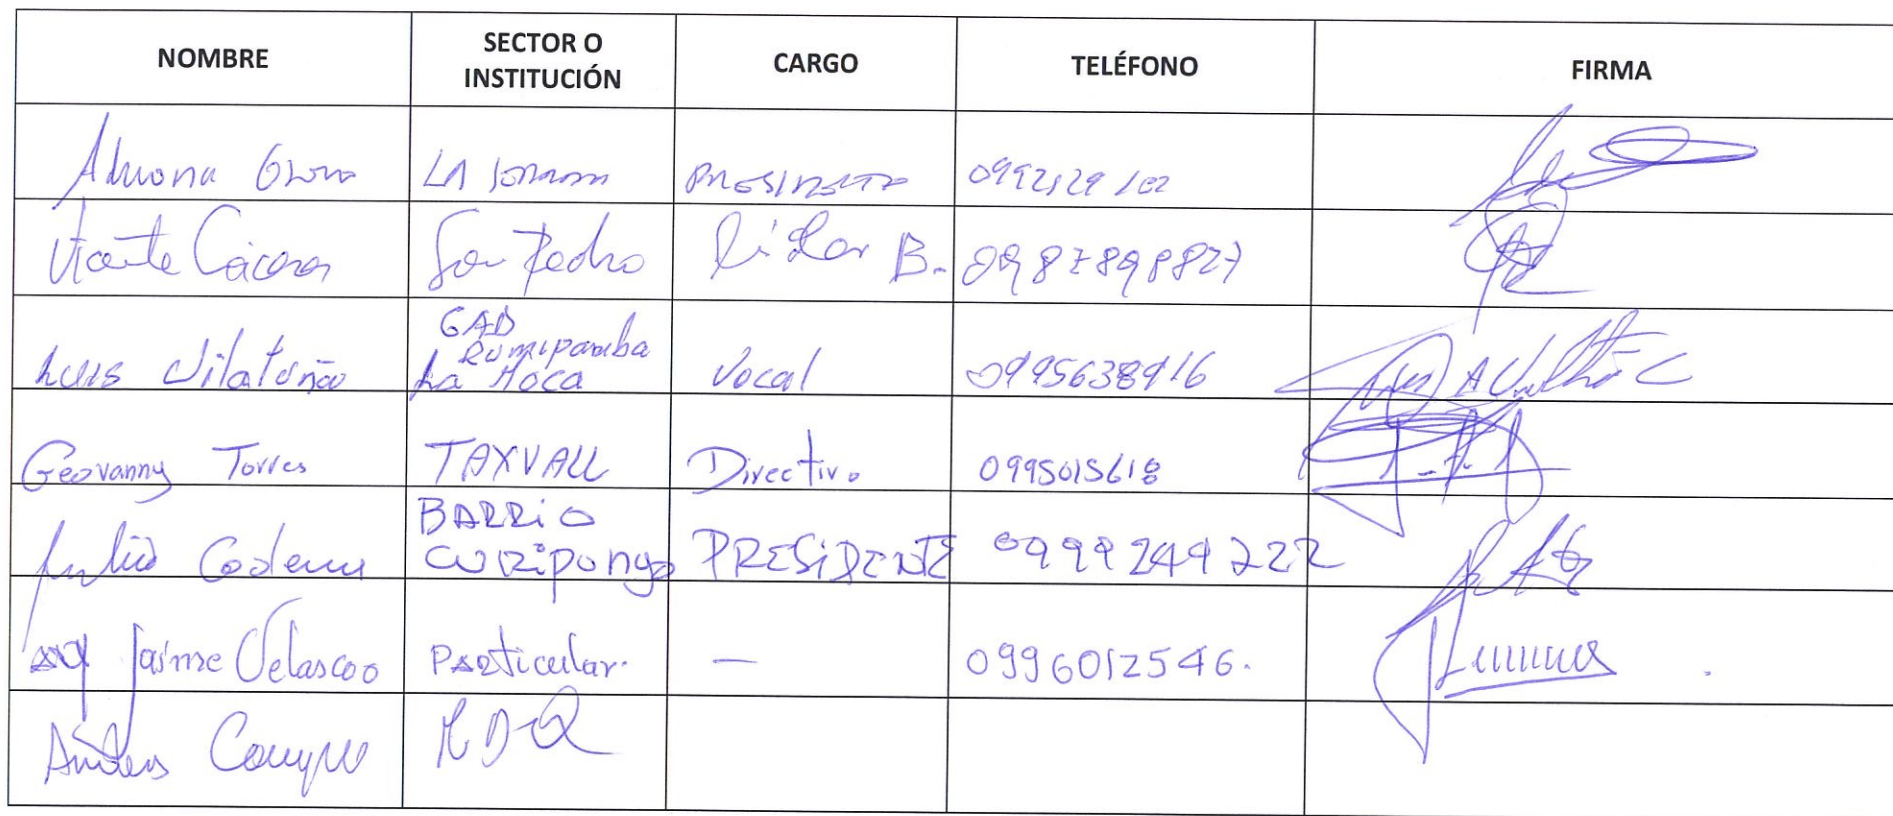 NOMBRE SECTOR O INSTITUCIÓN CARGO TELÉFONO FIRMA
Adriana LA PRESIDENTA
Vicente Cáceres San Pedro Líder B. 0987898827
Luis Vilatuña GAD Rumipamba La Moca Vocal 0995638916
Geovanny Torres TAXVALL Directivo 0995015618
Julio Codena BARRIO CURIPUNGO PRESIDENTE 0999249222
Jaime Velascoo Particular. — 0996012546.
Andrés Campo MDQ